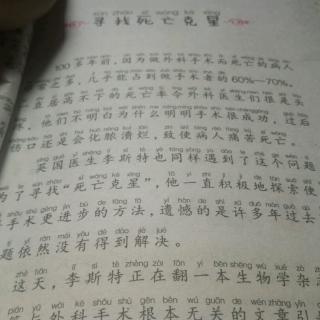 寻找死亡克星
100多年前，因为做外科手术而死亡的病人
非常之多，几乎能占到做手术者的60%—70%。
居高不下的死亡率令外科医生们很是头
他们不明白为什么明明手术很成功，过后
伤口还是会化脓溃烂，致使病人痛苦死亡。
英国医生李斯特也同样遇到了这个问题
为了寻找“死亡克星”，他一直积极地探索使
手术更进步的方法，遗憾的是许多年过去
题依然没有得到解决。
这天，李斯特正在翻一本生物学杂
与外科手术根本无关的文章引